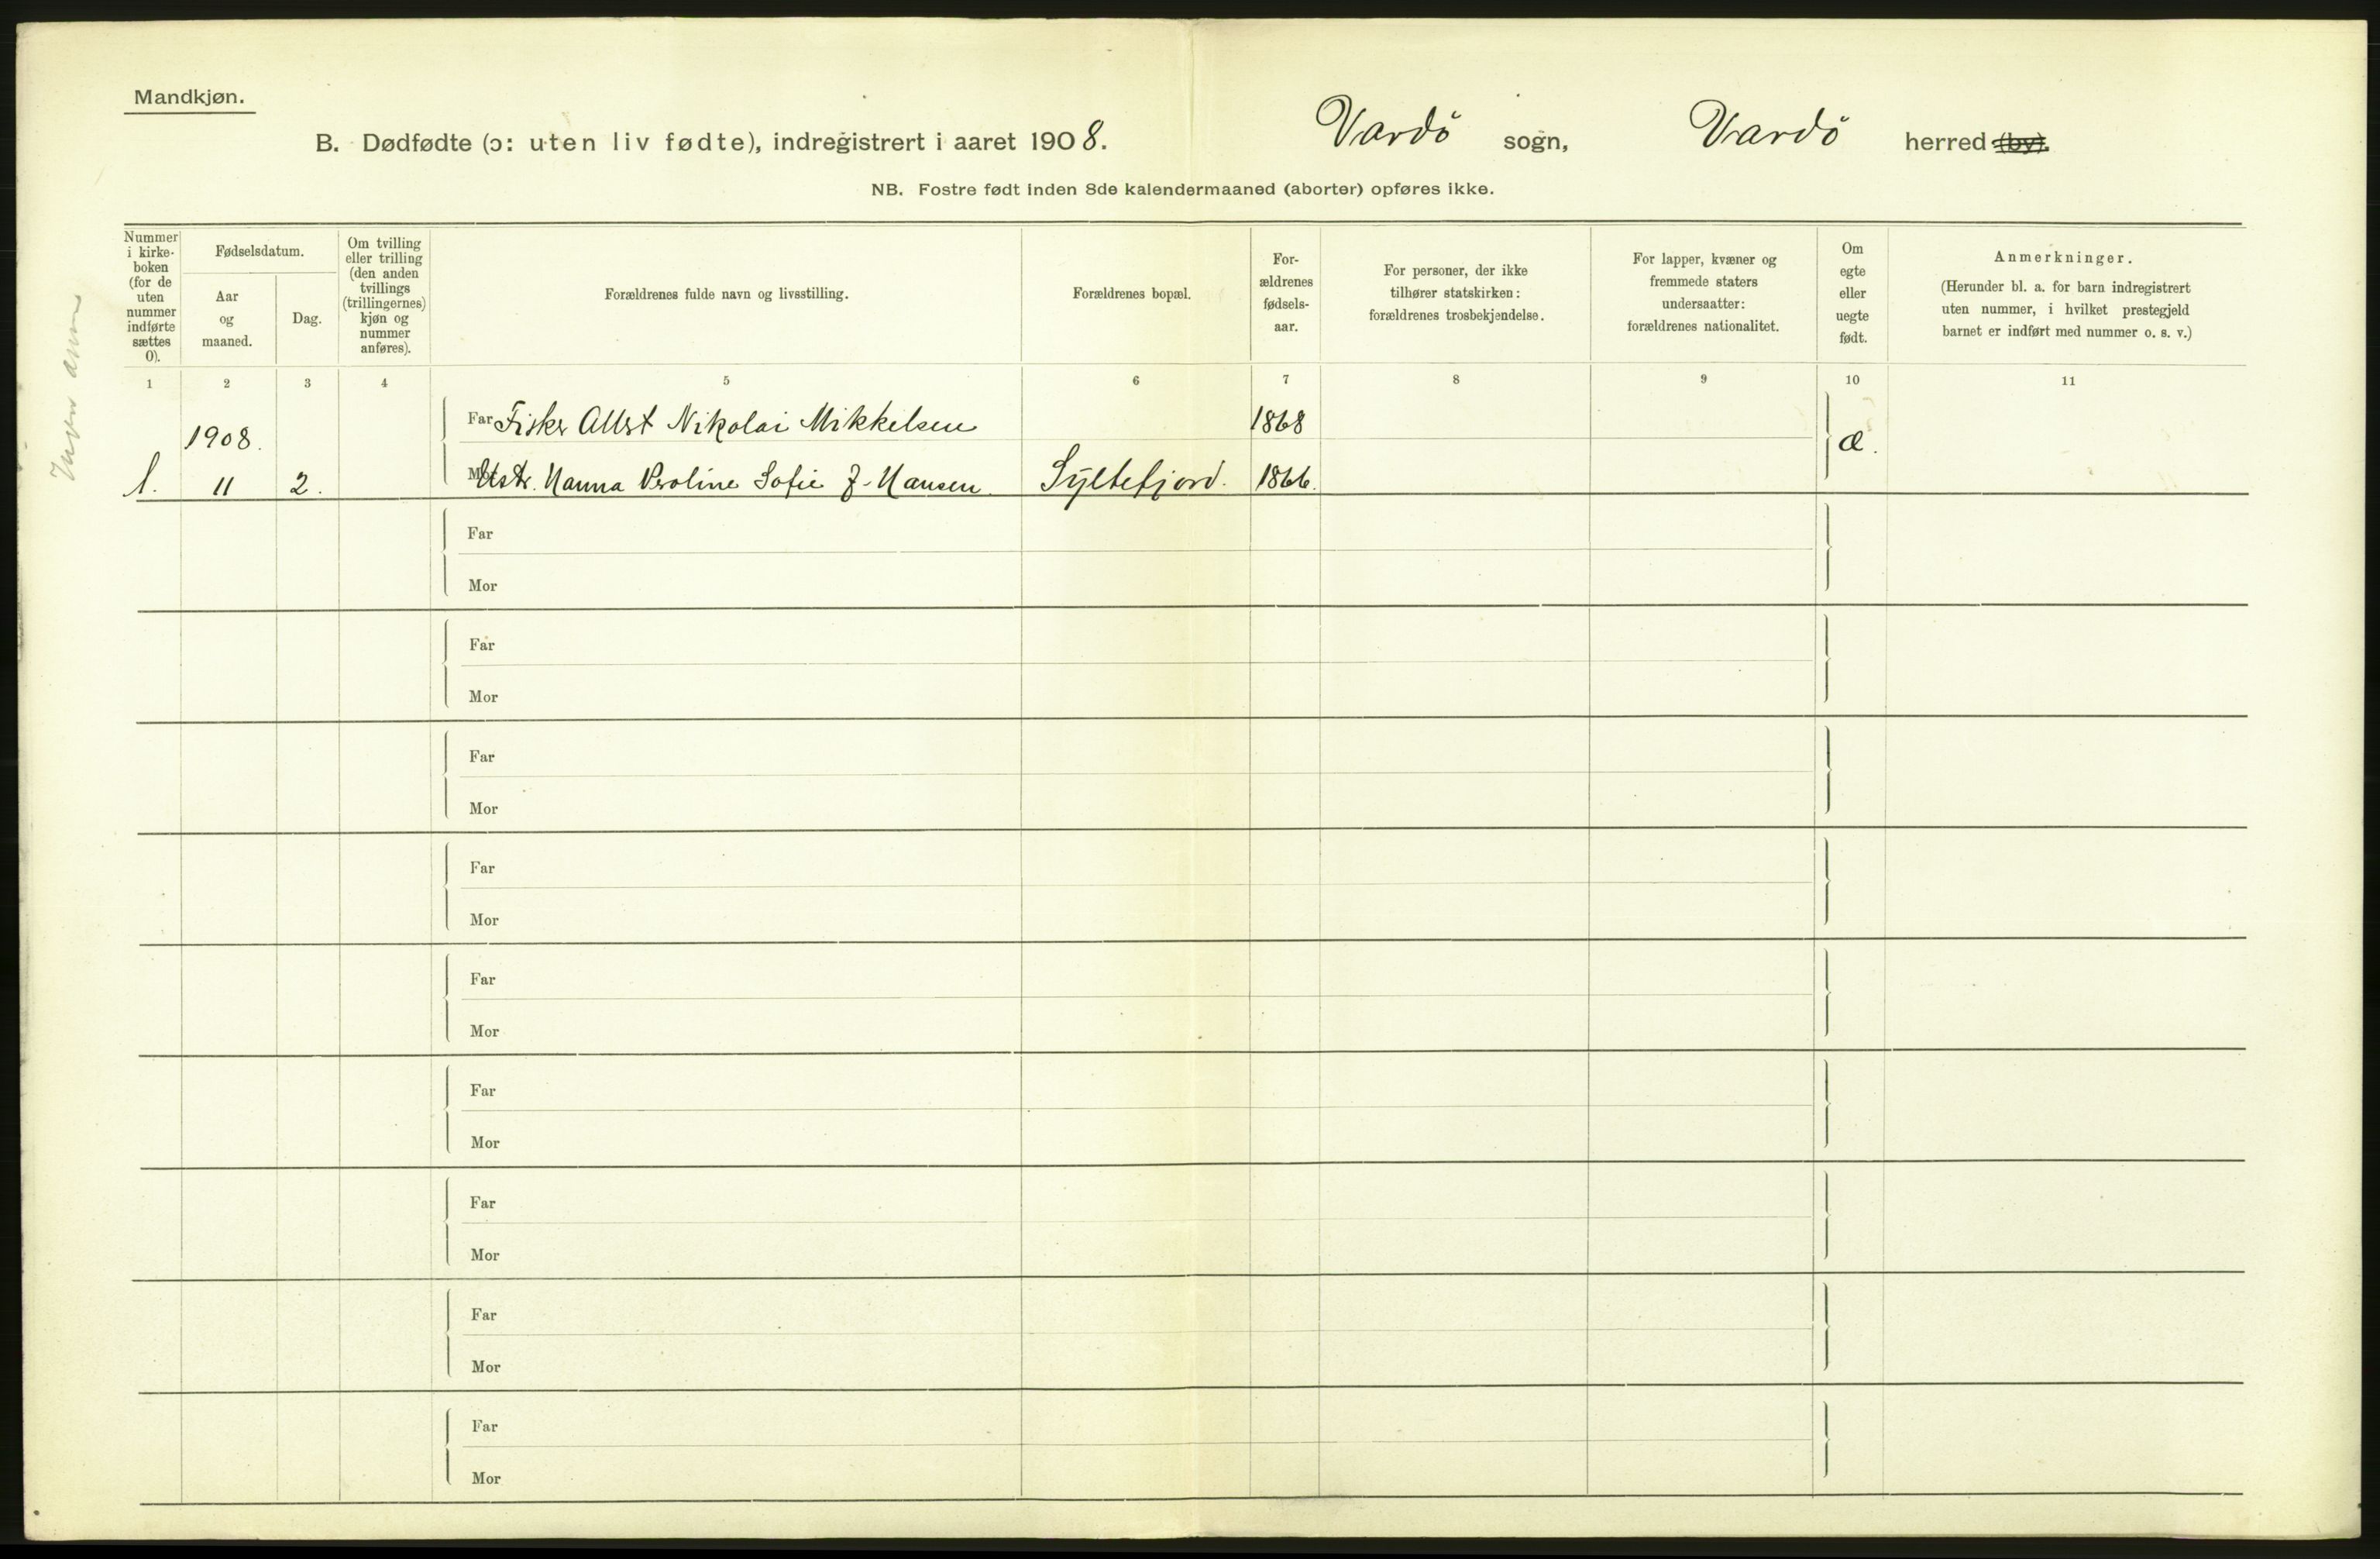 Mandkjøn.
B. Dødfødte (ɔ: uten liv fødte), indregistrert i aaret 1908. Vardö sogn, Vardö herred (by).
NB. Fostre født inden 8de kalendermaaned (aborter) opføres ikke.
Nummer i kirke-boken (for de uten nummer indførte sættes 0).
Fødselsdatum.
Aar og maaned.
Dag.
Om tvilling eller trilling (den anden tvillings (trillingernes) kjøn og nummer anføres).
Forældrenes fulde navn og livsstilling.
Forældrenes bopæl.
For-ældrenes fødsels-aar.
For personer, der ikke tilhører statskirken: forældrenes trosbekjendelse.
For lapper, kvæner og fremmede staters undersaatter: forældrenes nationalitet.
Om egte eller uegte født.
Anmerkninger.
(Herunder bl. a. for barn indregistrert uten nummer, i hvilket prestegjeld barnet er indført med nummer o. s. v.)
1 2 3 4 5 6 7 8 9 10 11
1908. Far Fisker Albert Nikolai Mikkelsen 1868 æ.
1. 11 2. Mor Hstr. Hanna Peroline Sofie J. Hansen. Syltefjord. 1866.
Far
Mor
Far
Mor
Far
Mor
Far
Mor
Far
Mor
Far
Mor
Far
Mor
Far
Mor
Far
Mor